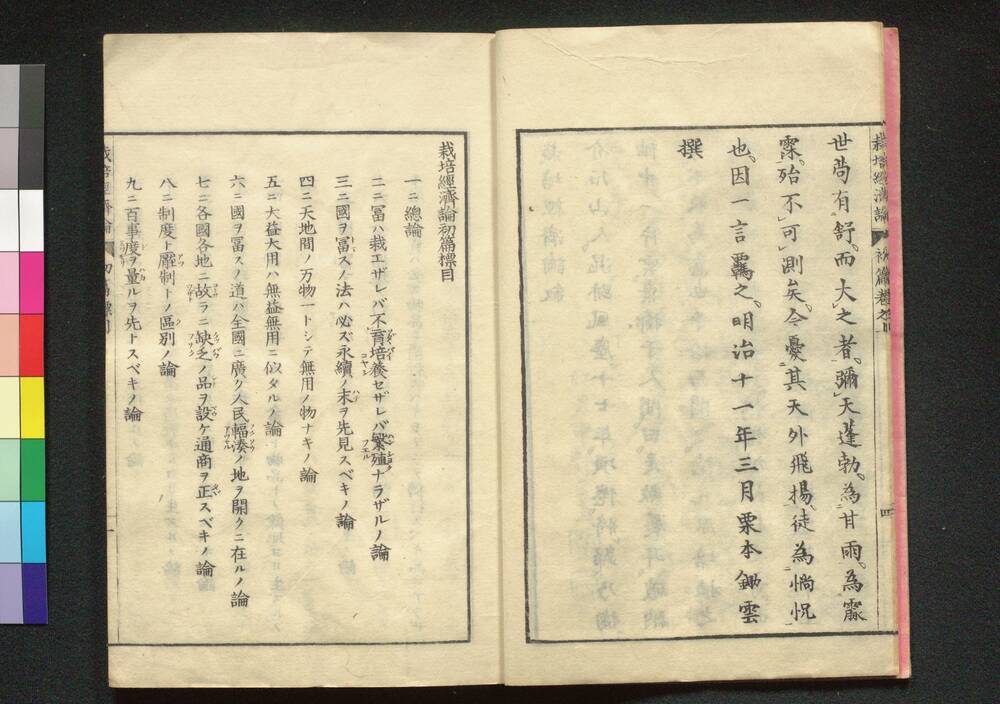 栽培經濟論 初篇卷之上 四
世尚有舒。而大之者。彌天蓬勃。為甘雨。為霢
霂。殆不可測矣。今憂其天外飛揚。徒為惝怳
也。因一言羈之。明治十一年三月栗本鋤雲
撰
栽培經濟論初篇標目
一ニ總論
二ニ冨ハ栽エザレバ不育培養セザレバ繁殖ナラザルノ論
三ニ國ヲ冨スノ法ハ必ズ永續ノ末ヲ先見スベキノ論
四ニ天地間ノ万物一トシテ無用ノ物ナキノ論
五ニ大益大用ハ無益無用ニ似タルノ論
六ニ國ヲ冨スノ道ハ全國ニ廣ク人民輻湊ノ地ヲ開クニ在ルノ論
七ニ各國各地ニ故ラニ缺乏ノ品ヲ設ケ通商ヲ正スベキノ論
八ニ制度ト壓制トノ區別ノ論
九ニ百事度ヲ量ルヲ先トスベキノ論